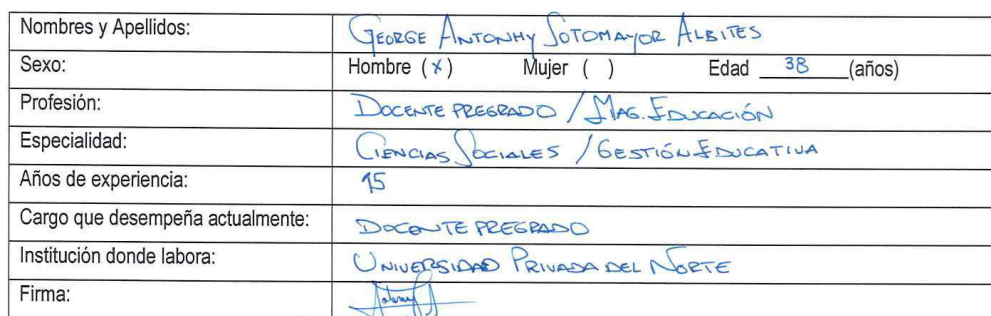 Nombres y Apellidos: GEORGE ANTONHY SOTOMAYOR ALBITES
Sexo: Hombre (x) Mujer ( ) Edad 38 (años)
Profesión: DOCENTE PREGRADO / MAG. EDUCACIÓN
Especialidad: CIENCIAS SOCIALES / GESTIÓN EDUCATIVA
Años de experiencia: 15
Cargo que desempeña actualmente: DOCENTE PREGRADO
Institución donde labora: UNIVERSIDAD PRIVADA DEL NORTE
Firma: